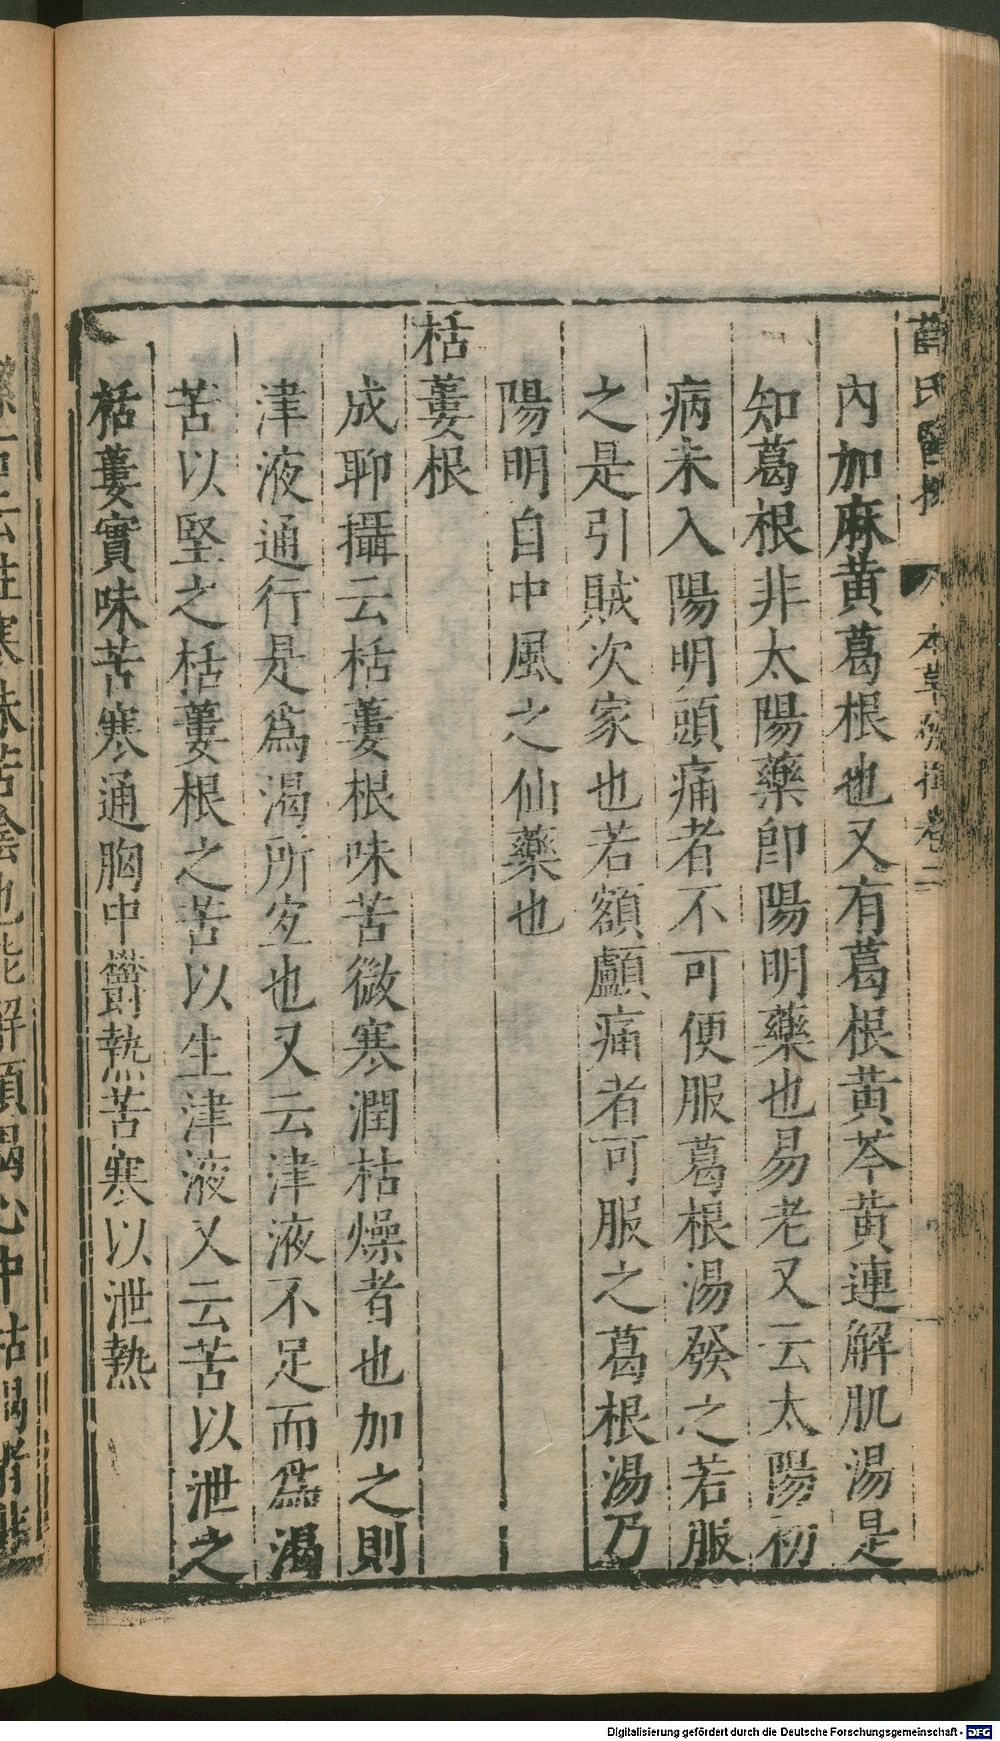 薛氏醫按 本草發揮卷二
內加麻黃葛根也又有葛根黃芩黃連解肌湯是
知葛根非太陽藥卽陽明藥也易老又云太陽初
病未入陽明頭痛者不可便服葛根湯發之若服
之是引賊次家也若額顱痛者可服之葛根湯乃
陽明自中風之仙藥也
栝蔞根
成聊攝云栝蔞根味苦微寒潤枯燥者也加之則
津液通行是爲渴所宜也又云津液不足而爲渴
苦以堅之栝蔞根之苦以生津液又云苦以泄之
栝蔞實味苦寒通胸中鬱熱苦寒以泄熱
寒味苦陰也能解煩渴心中枯渴者
Digitalisierung gefördert durch die Deutsche Forschungsgemeinschaft - DFG